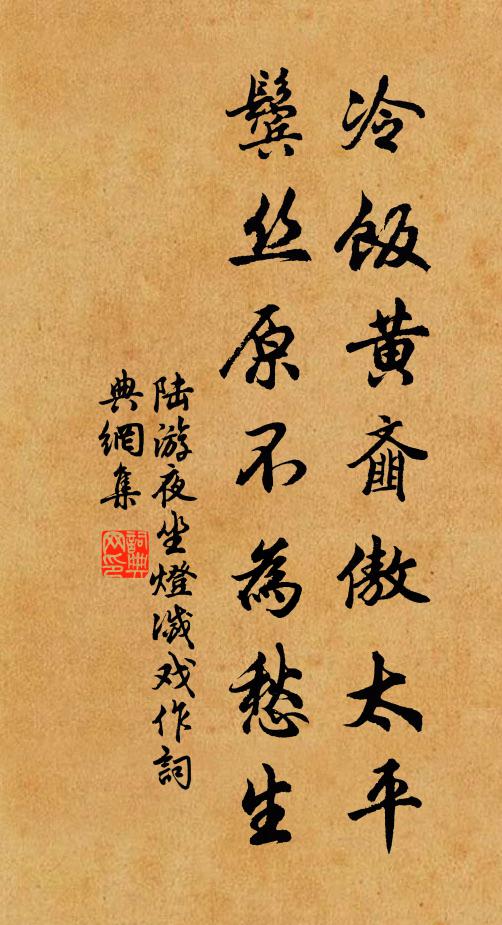 冷飯黄齏傲太平
鬓丝原不為愁生
陆游夜坐燈滅戏作詞
典網集
詞典
网印